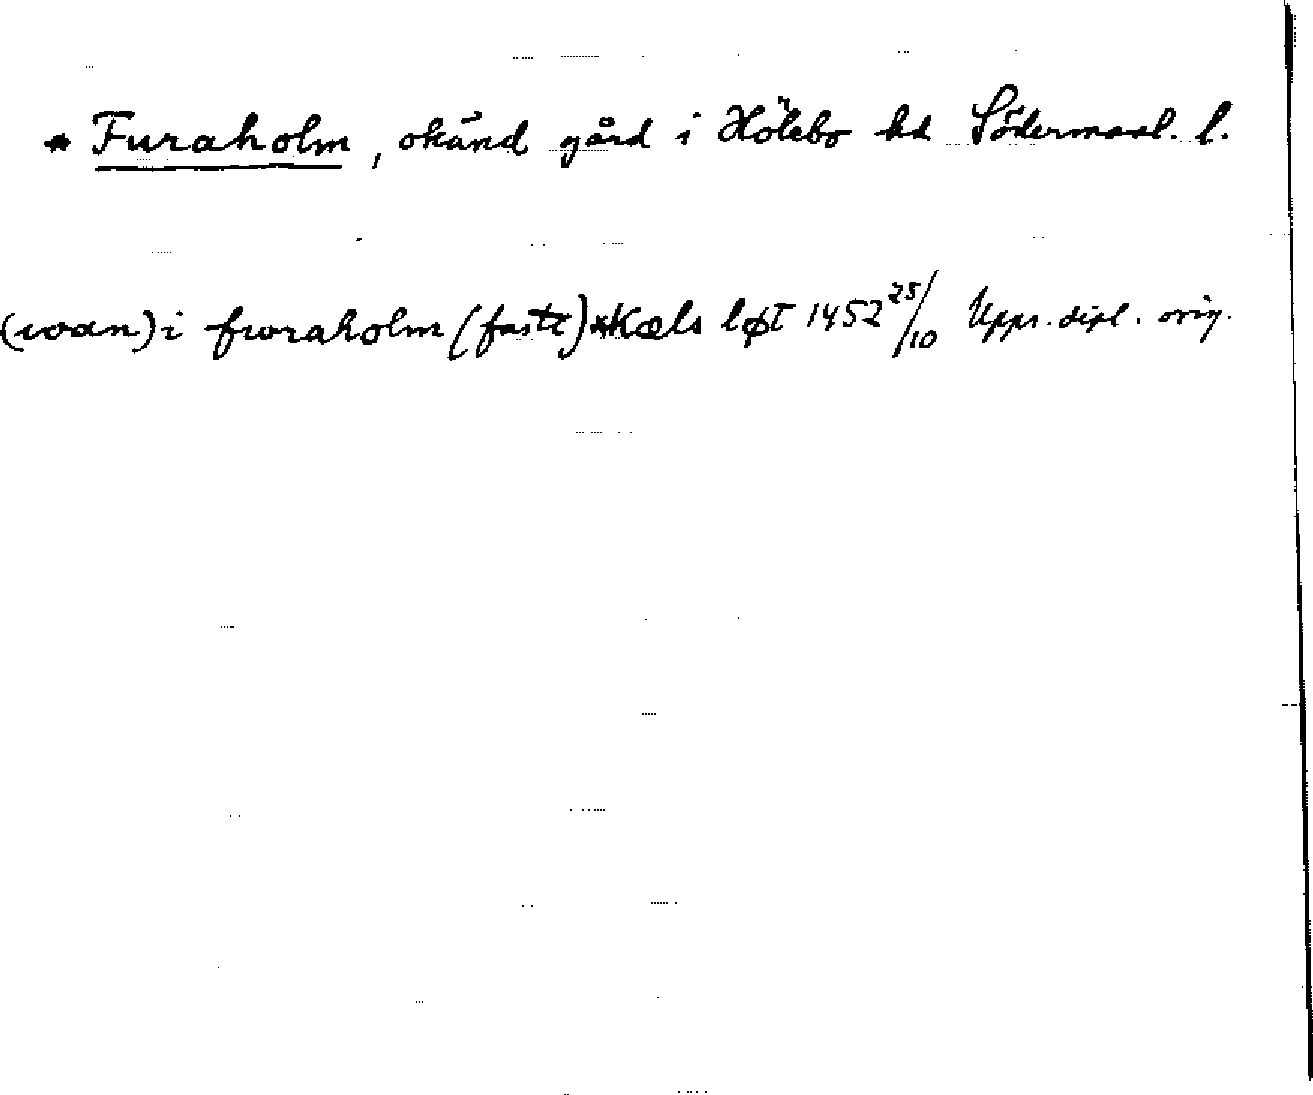 * Furaholm, okänd gård i Hölebo hd Södermanl. l.
(ioan) i furaholm (faste) *Kæls løt 1452 25/10 Upps. dipl. orig.